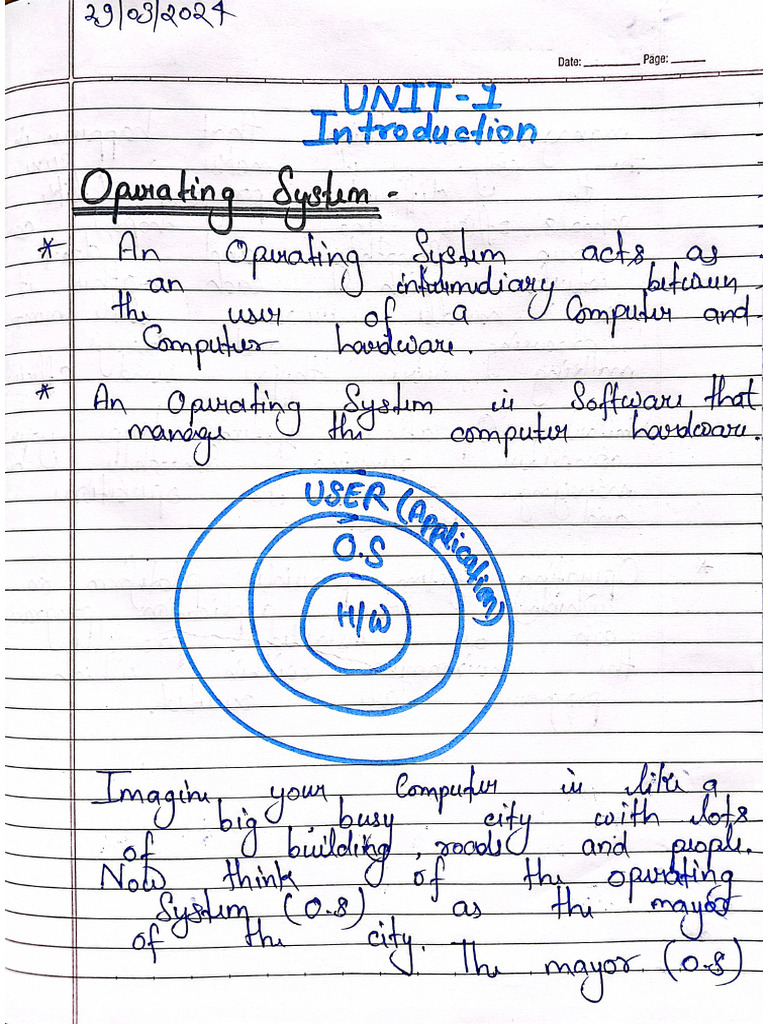 29/03/2024
Date: ________ Page: _____
UNIT-1
Introduction
Operating System -
* An Operating System acts as
an intermediary between
the user of a Computer and
Computer hardware.
* An Operating System is Software that
manage the computer hardware.
USER (Application)
O.S
H/W
Imagine your Computer is like a
big, busy city with lots
of building, roads and people.
Now think of the operating
System (O.S) as the mayor
of the city. The mayor (O.S)